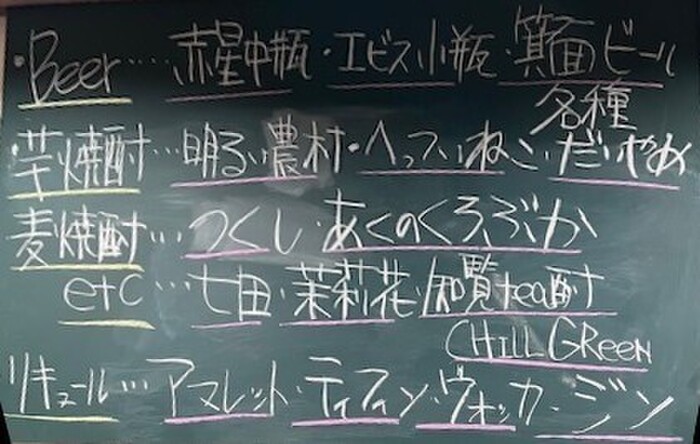 ・Beer…‥赤星中瓶・エビス小瓶・箕面ビール
各種
・芋焼酎…明るい農村・へっついねこ・だいやめ
麦焼酎…つくし・あくのくろぶか
etc…七田・茉莉花・知覧tea酎
CHILL GReeN
リキュール…アマレット・ティフィン・ウォッカ・ジン